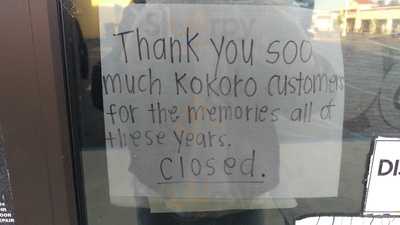 Thank you soo
much Kokoro customers
for the memories all of
these years.
closed.
DI
OOR
EPAIR